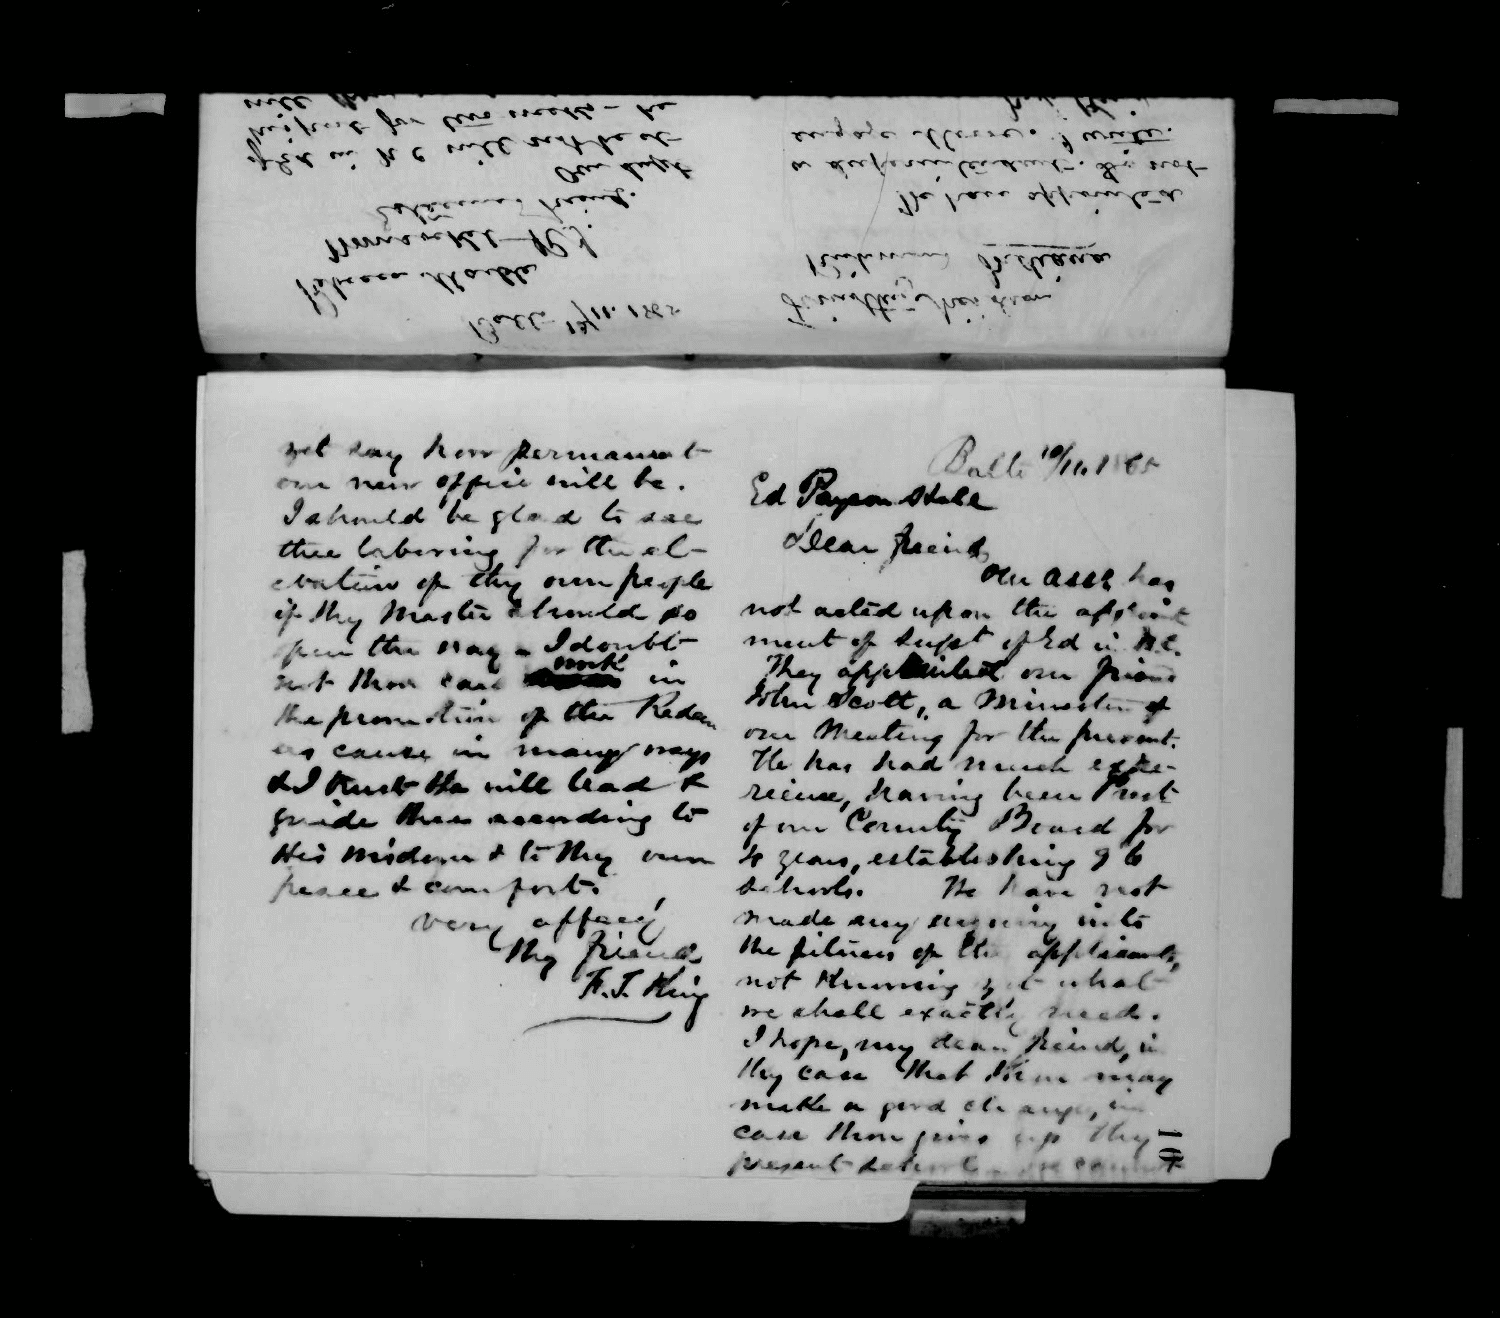 Balto 10/11. 1865
Ed Payson Hall
Dear friend
Our Assn has
not acted upon the appoint
ment of Supt of Ed in N.C.
They appointed our friend
John Scott, a Minister of
our Meeting for the present.
He has had much expe-
rience, having been Prest
of our County Board for
4 years, establishing 96
schools. We have not
made any enquiry into
the fitness of the applicants,
not knowing yet what
we shall exactly need.
I hope, my dear friend, in
thy case that thou may
make a good change, in
case thou gives up thy
present school. We cannot
yet say how permanent
our new office will be.
I should be glad to see
thee laboring for the el-
evation of thy own people
if thy Master should so
open the way. I doubt
not thou can work in
the promotion of the Redeem
ers cause in many ways
& I trust He will lead &
guide thee according to
His wisdom & to thy own
peace & comfort.
very affecy
thy friend
F. T. King
101
Balto 10/11. 1865
Rebecca
R.I.
Esteemed Friend,
Our Supt
of Ed in N C will not be at
his post for two weeks - he
will
Timothy Nicholson
Richmond Indiana
We have appointed
a Superintendent. Do not
engage Moore. I write.